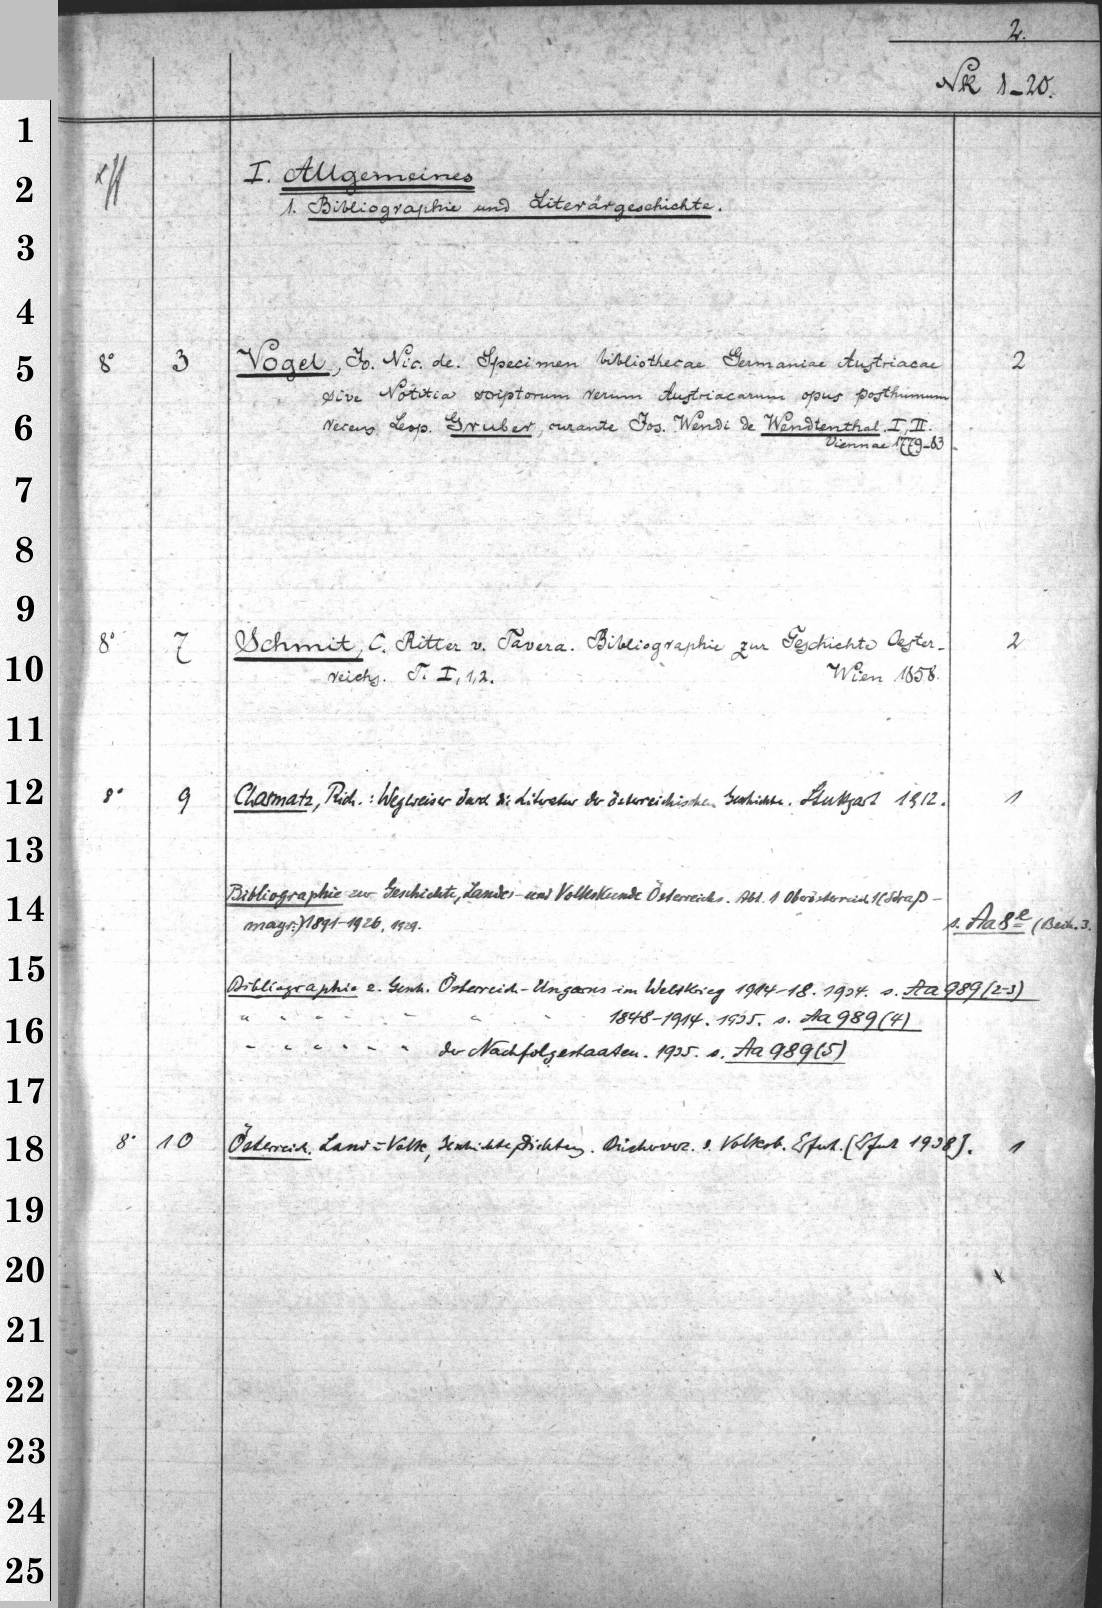 2.
Nk 1-20.
1
2 I. Allgemeines
1. Bibliographie und Literärgeschichte.
3
4
5 8° 3 Vogel, Jo. Nic. de. Specimen bibliothecae Germaniae Austriacae 2
sive Notitia scriptorum rerum Austriacarum opus posthumum
6 recens. Leop. Gruber, curante Jos. Wendt de Wendtenthal. I, II.
Viennae 1779-83
7
8
9
8° 7 Schmit, C. Ritter v. Tavera. Bibliographie zur Geschichte Oester- 2
10 reichs. T. I, 1,2. Wien 1858.
11
12 8° 9 Charmatz, Rich.: Wegweiser durch die Literatur der österreichischen Geschichte. Stuttgart 1912. 1
13
14 Bibliographie zur Geschichte, Landes- und Volkskunde Österreichs. Abt. 1 Oberösterreich 1(Straß-
mayr:) 1891-1926, 1929. s. Aa 8 (Beih. 3.
15
Bibliographie z. Gesch. Österreich-Ungarns im Weltkrieg 1914-18. 1934. s. Aa 989(2-3)
16 " " " " " " " 1848-1914. 1935. s. Aa 989(4)
" " " " " " der Nachfolgestaaten. 1935. s. Aa 989(5)
17
18 8° 10 Österreich. Land = Volk, Geschichte, Dichtung. Bücherverz. d. Volksb. Erfurt. [Erfurt 1938]. 1
19
20
21
22
23
24
25